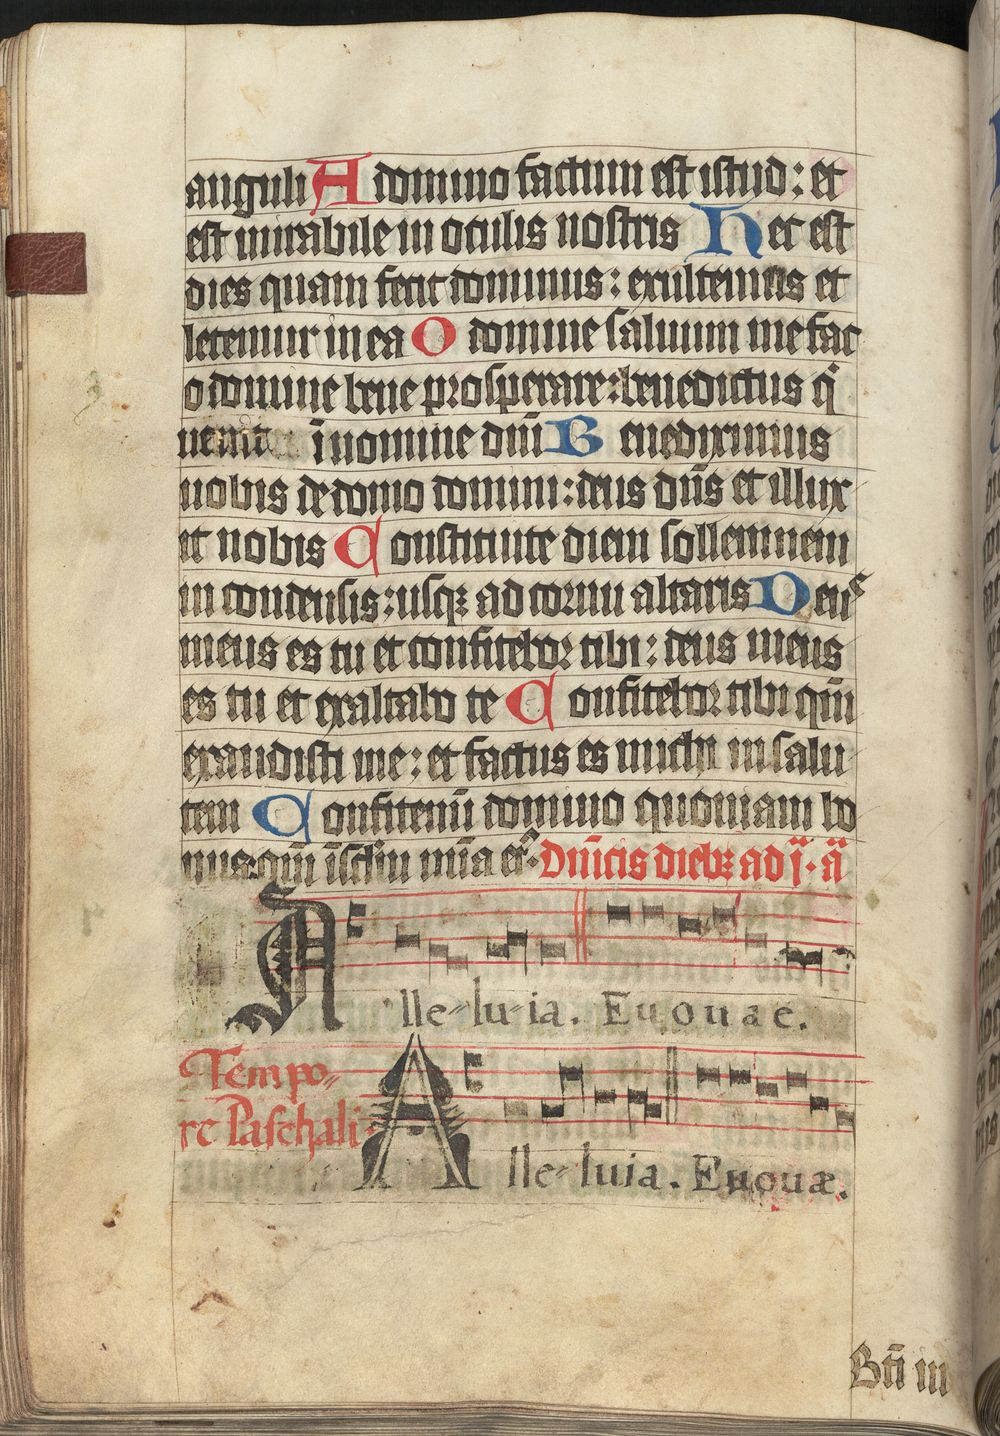 anguli A domino factum est istud: et
est mirabile in oculis nostris Hec est
dies quam fecit dominus: exultemus et
letemur in ea O domine saluum me fac
o domine bene prosperare: benedictus q̄
uenit ī nomine dnī Benediximus
nobis de domo domini: deus dn̄s et illux
it nobis Constituite diem sollemnem
in condensis: usqꝫ ad cornu altaris Deus
meus es tu et confitebor tibi: deus meus
es tu et exaltabo te Confitebor tibi qm̄
exaudisti me: et factus es michi in salu
tem Confitemī domino quoniam bo
nus: qm̄
Dn̄icis diebꝫ ad j. ā
Alle-lu-ia. Euouae.
Tempo-
re Paschali.
Alle-luia. Euouæ.
Btī in